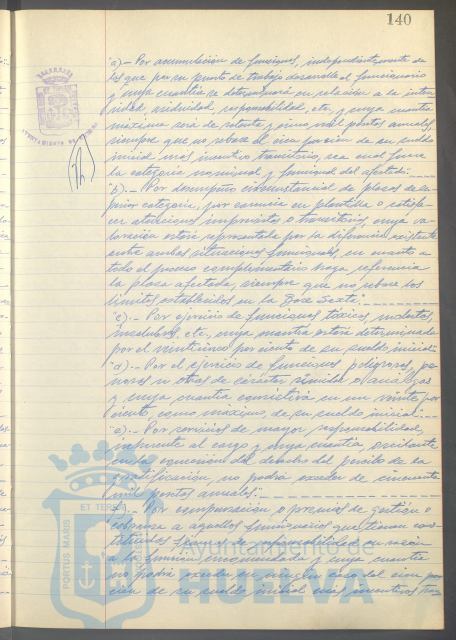 140
"a).- Por acumulación de funciones, independientemente de
las que por su puesto de trabajo desarrolle el funcionario
y cuya cuantía se determinará en relación a la inten-
sidad, asiduidad, responsabilidad, etc, y cuya cuantía
máxima será de setenta y cinco mil pesetas anuales,
siempre que no rebase el cien por cien de su sueldo
inicial mas incentivo transitorio, sea cual fuere
la categoría nominal y funcional del afectado.
"b).- Por desempeño circunstancial de plazas de su-
perior categoría, por vacancia en plantilla o satisfa-
cer atenciones imprevistas o transitorias, cuya va-
loración estará representada por la diferencia existente
entre ambas situaciones funcionales, en cuanto a
todo el proceso complementario haga referencia
la plaza afectada, siempre que no rebase los
límites establecidos en la Base Sexta.
"c).- Por ejercicio de funciones tóxicas, molestas,
insalubres, etc., cuya cuantía estará determinada
por el veinticinco por ciento de su sueldo inicial.
"d).- Por el ejercicio de funciones peligrosas, pe-
nosas u otras de carácter similar o análogas
y cuya cuantía consistirá en un veinte por
ciento, como máximo, de su sueldo inicial.
"e).- Por servicios de mayor responsabilidad,
inherente al cargo y cuya cuantía, oscilante
en la concesión del derecho del percibo de la
gratificación, no podrá exceder de cincuenta
mil pesetas anuales.
"f).- Por compensación o premios de gestión o
cobranza a aquellos funcionarios que tienen cons-
tituidas fianzas de responsabilidad en razón
a la función encomendada y cuya cuantía
no podrá exceder en ningún caso del cien por
cien de su sueldo inicial mas incentivos
PORTUS MARIS
ET TERRE
Ayuntamiento de
HUELVA